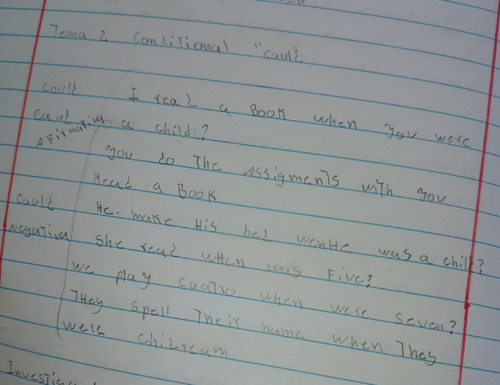 Tema 2 Conditional "could
could I read a Book when you were
could a child?
Afirmativa
you do The assigments with you
Read a Book
could He. make His bed wenHe was a child?
negativa she read when was Five?
we play cuatro when were seven?
They spell Their name when They
were chilream